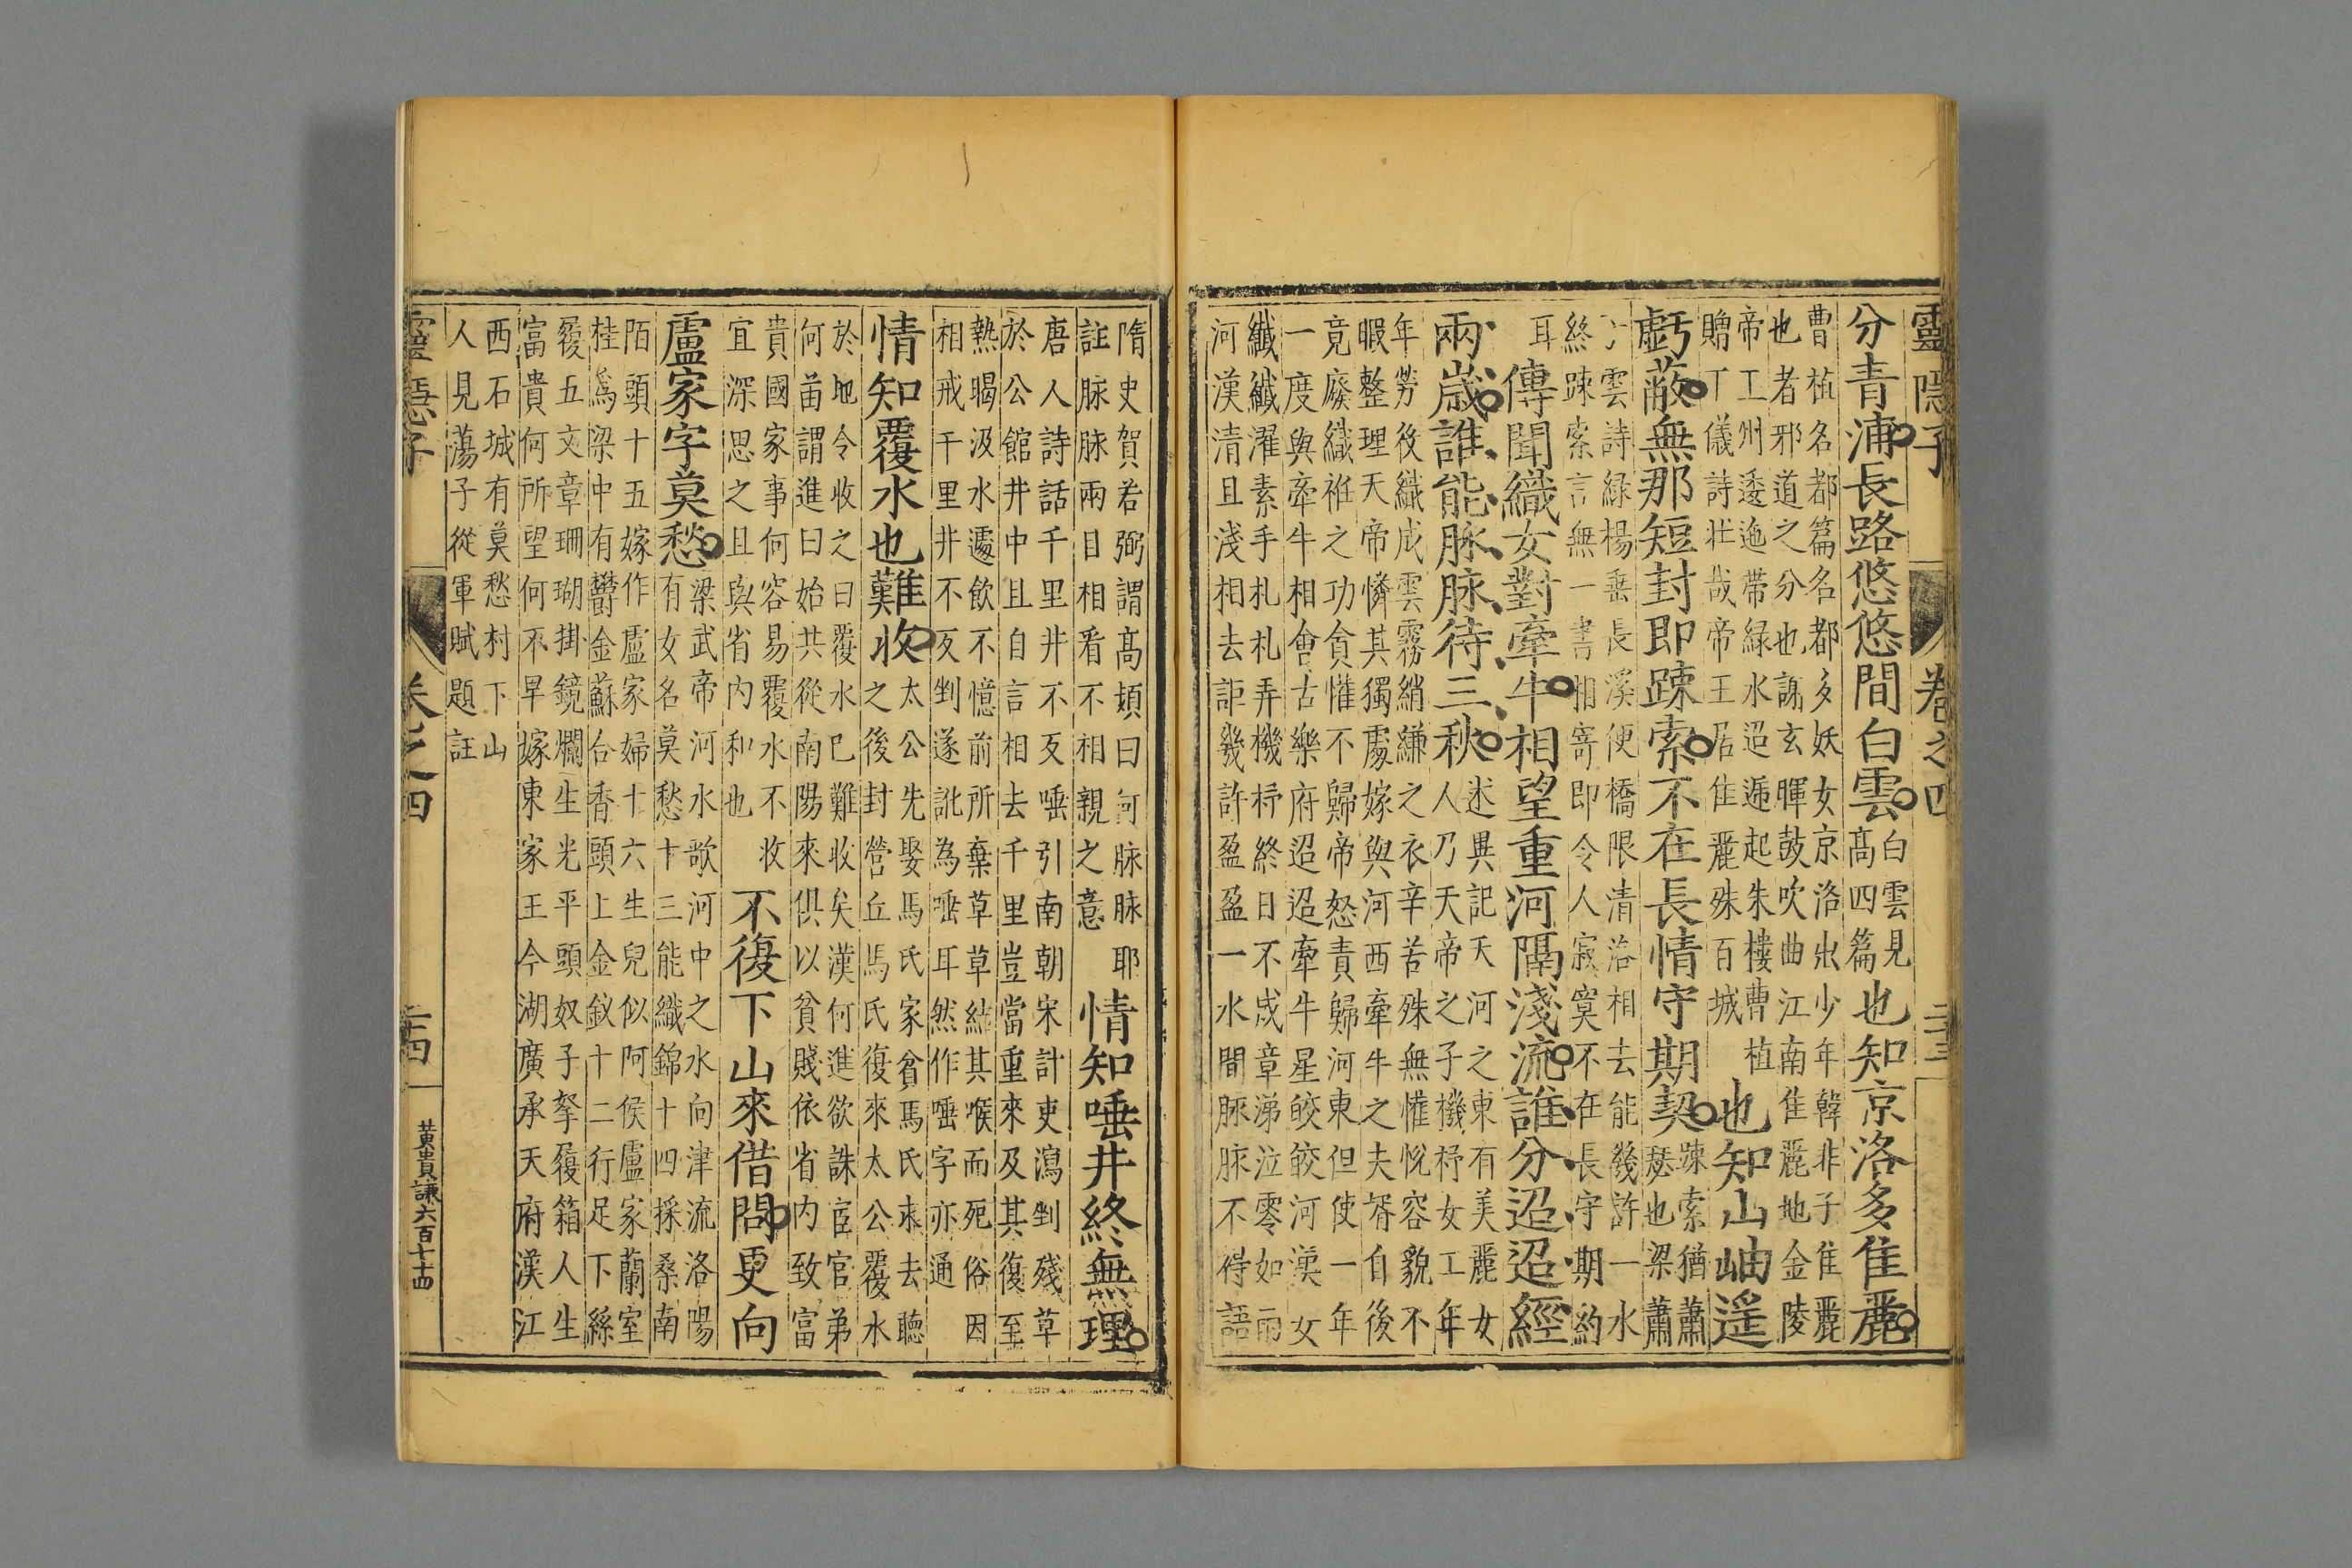 靈隱子 卷之四 二十三
分青浦長路悠悠間白雲
白雲見
高四篇
也知京洛多隹麗
曹植名都篇名都多妖女京洛出少年韓非子隹麗
也者邪道之分也謝玄暉鼓吹曲江南隹麗地金陵
帝工州逶迤帶緑水迢遞起朱樓曹植
贈丁儀詩壯哉帝王居隹麗殊百城
也知山岫遥
虧蔽無那短封即踈索不在長情守期契
踈索猶蕭
瑟也梁蕭
雲詩緑楊垂長溪便橋限清洛相去能幾許一水
終踈索言無一書相寄即令人寂寞不在長守期約
耳
傳聞織女對牽牛相望重河隔淺流誰分迢迢經
兩歲誰能脉脉待三秋
述異記天河之東有美麗女
人乃天帝之子機杼女工年
年勞役織成雲霧綃縑之衣辛苦殊無懽悅容貌不
暇整理天帝憐其獨處嫁與河西牽牛之夫壻自後
竟廢織袵之功貪懽不歸帝怒責歸河東但使一年
一度與牽牛相會古樂府迢迢牽牛星皎皎河漢女
纖纖濯素手札札弄機杼終日不成章涕泣零如雨
河漢清且淺相去詎幾許盈盈一水間脉脉不得語
隋史賀若弼謂髙熲曰何脉脉耶
註脉脉兩目相看不相親之意
情知唾井終無理
唐人詩話千里井不反唾引南朝宋計吏瀉剉殘草
於公館井中且自言相去千里豈當重來及其復至
熱暍汲水遽飲不憶前所棄草草結其喉而死俗因
相戒千里井不反剉遂訛為唾耳然作唾字亦通
情知覆水也難收
太公先娶馬氏家貧馬氏求去聽
之後封營丘馬氏復來太公覆水
於地令收之曰覆水已難收矣漢何進欲誅宦官弟
何苗謂進曰始共從南陽來俱以貧賤依省内致富
貴國家事何容易覆水不收
宜深思之且與省内和也
不復下山來借問更向
盧家字莫愁
梁武帝河水歌河中之水向津流洛陽
有女名莫愁十三能織錦十四採桑南
陌頭十五嫁作盧家婦十六生兒似阿侯盧家蘭室
桂為梁中有鬱金蘇合香頭上金釵十二行足下絲
履五文章珊瑚掛鏡爛生光平頭奴子拏履箱人生
富貴何所望何不早嫁東家王今湖廣承天府漢江
西石城有莫愁村下山
人見蕩子從軍賦題註
靈隱子 卷之四 二十四
黄貴謙六百七十四